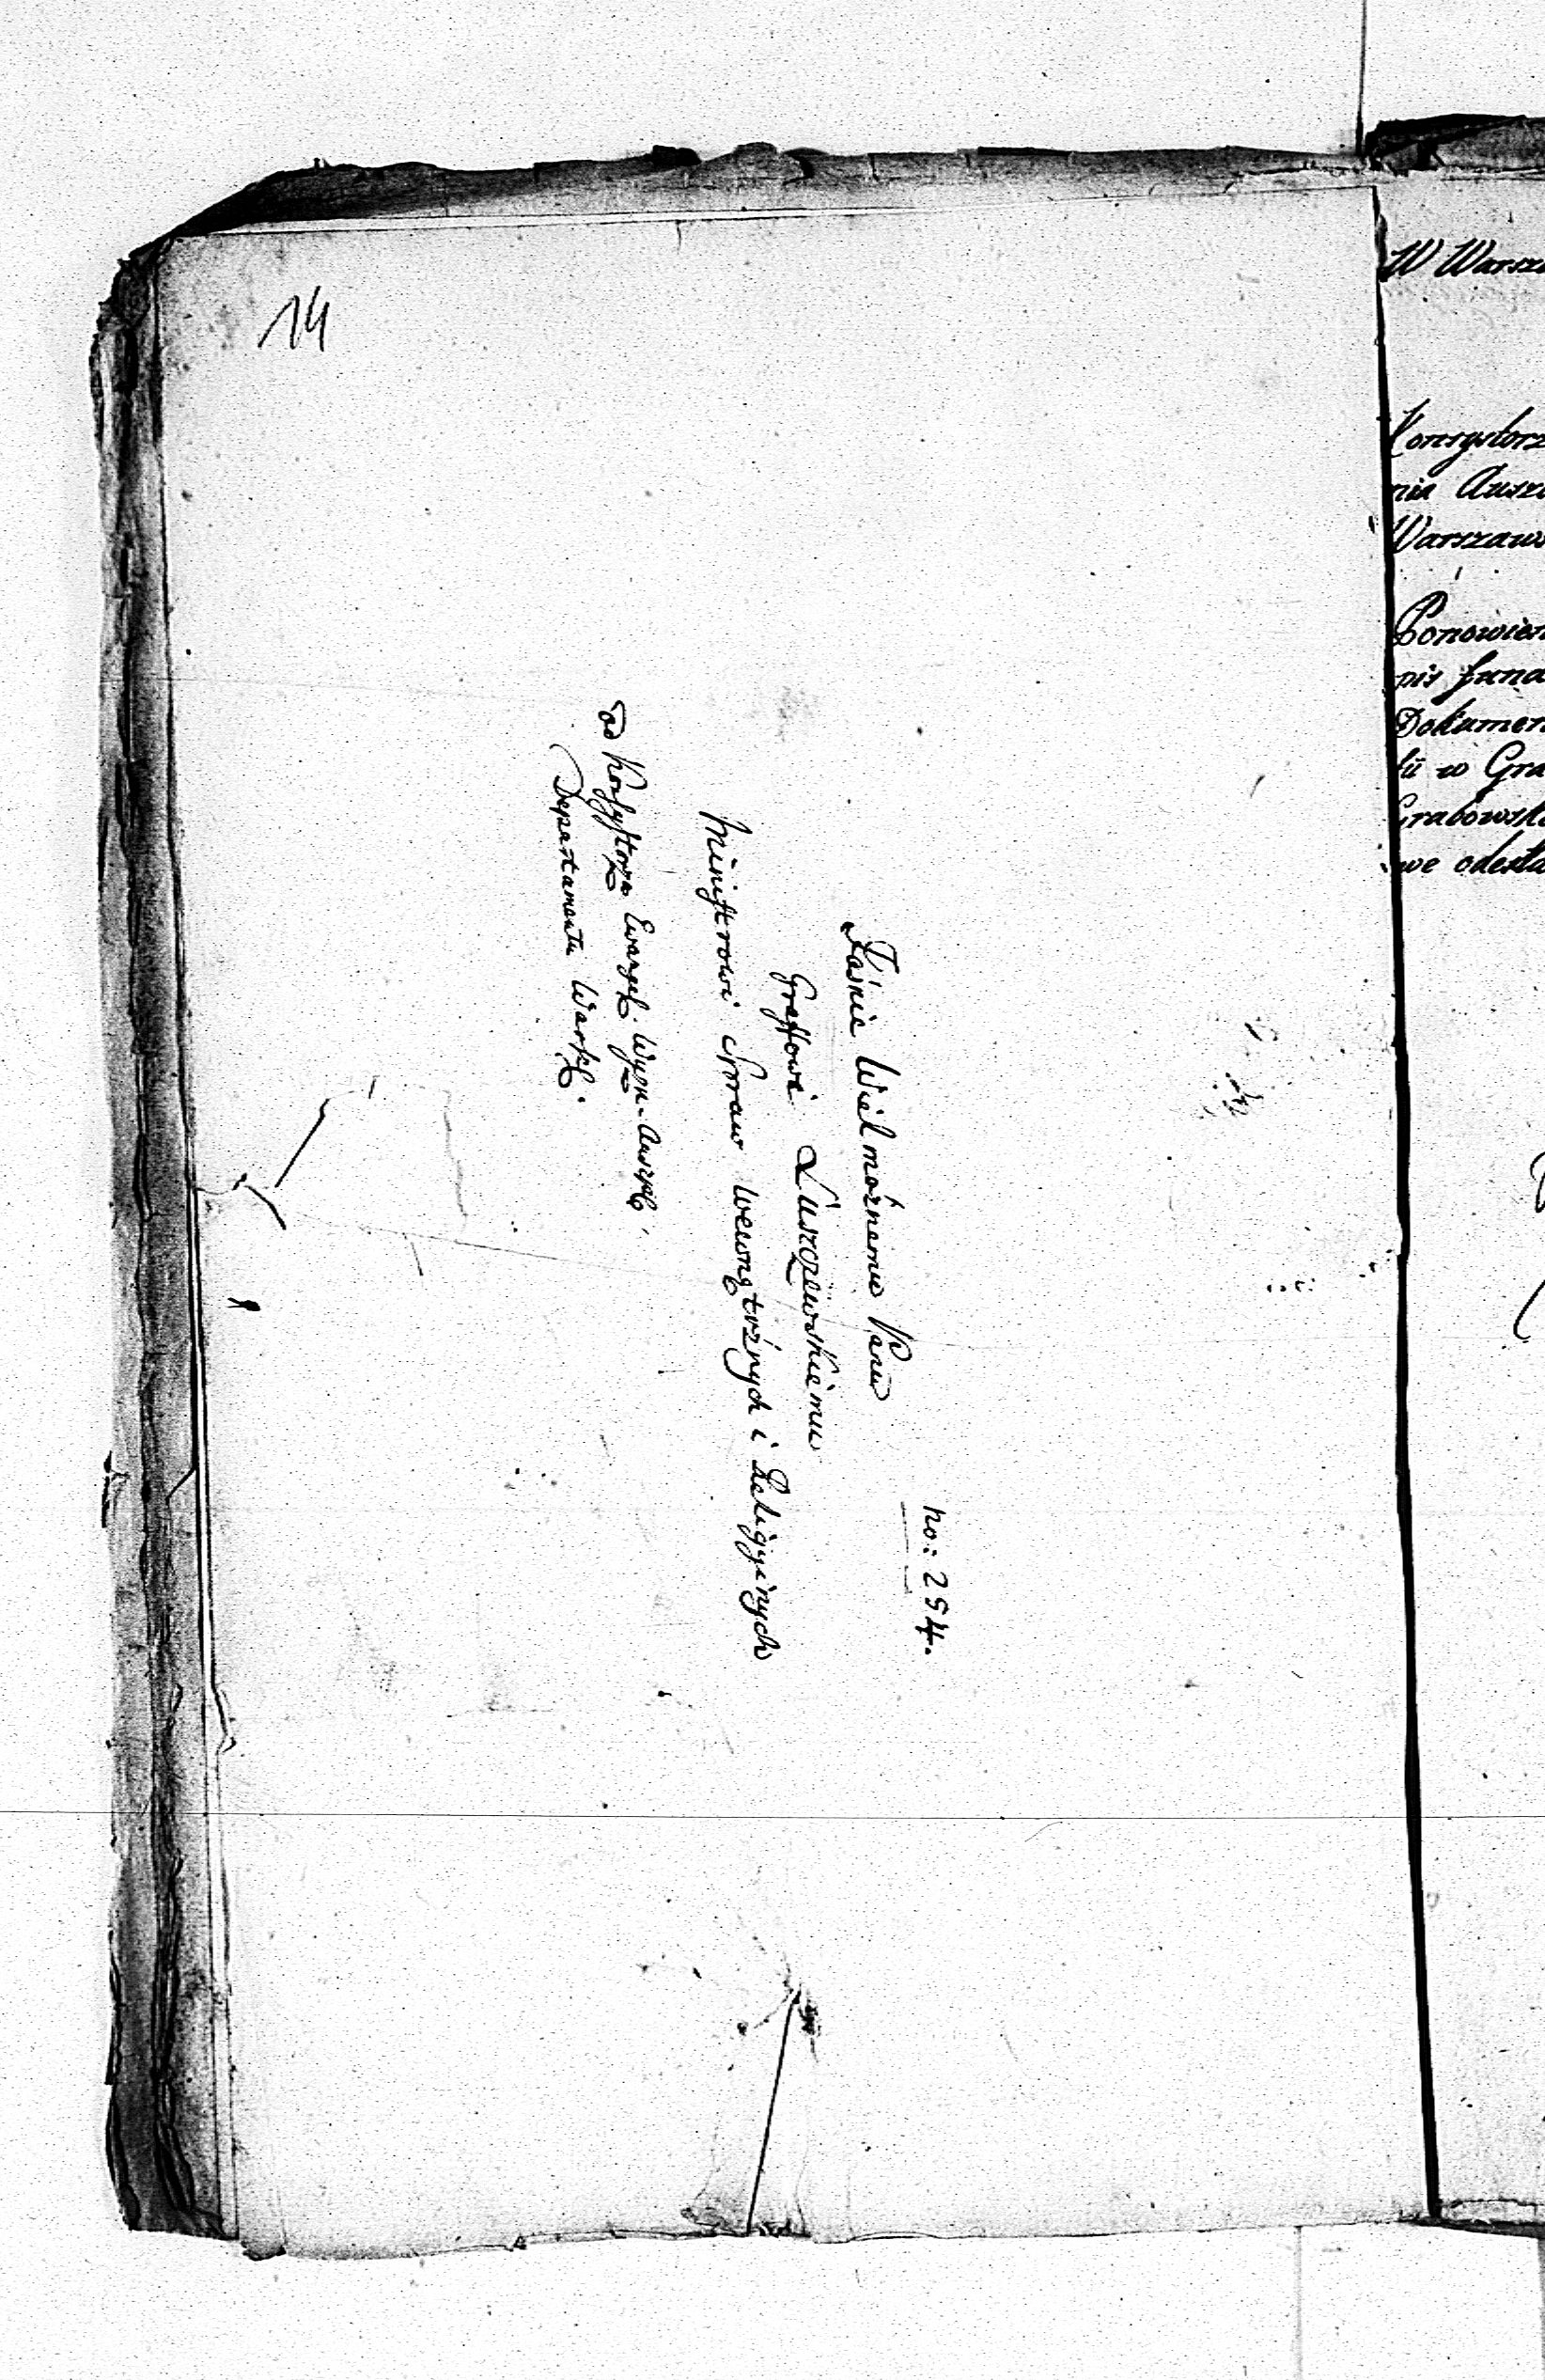 14
no: 254.
Jaśnie Wielmożnemu Panu
Graffowi Łuszczewskiemu
Ministrowi Spraw wewnątrżnych i Religyinych
od Konsystorza Ewangel. Wyzn. Auszb.
Departamentu Warsz.
W Warsz
Konsystorz
nia Ausz
Warszaws
Ponowien
pis funa
Dokumen
tu w Gra
Grabowsk
we odesła